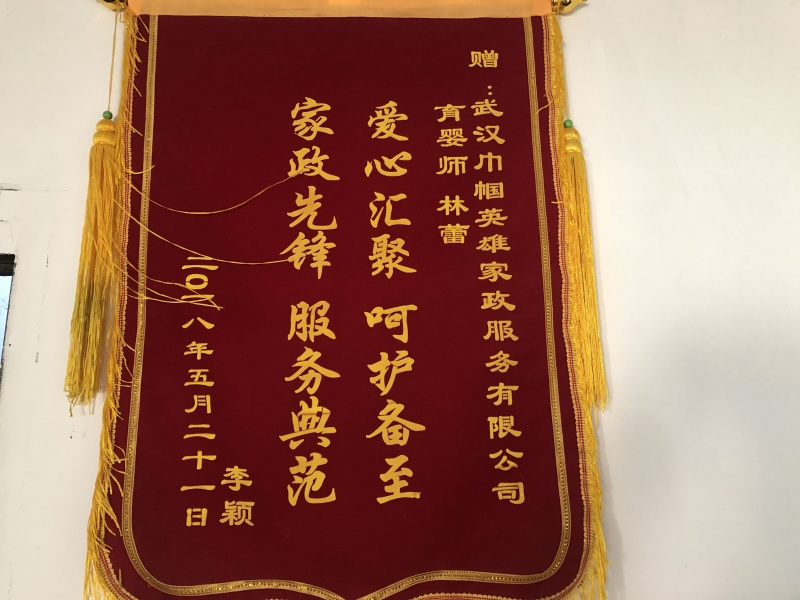 赠：武汉巾帼英雄家政服务有限公司
育婴师 林蕾
爱心汇聚 呵护备至
家政先锋 服务典范
李颖
二〇一八年五月二十一日